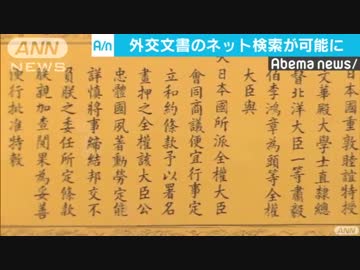 ANN
NEWS
A/n
外交文書のネット検索が可能に
Abema news/
大日本國重敦睦誼特授
文華殿大學士直隸總
督北洋大臣一等肅毅
伯李鴻章為頭等全權
大臣與
大日本國所派全權大臣
會同商議便宜行事定
立和約條款予以署名
畫押之全權該大臣公
忠體國夙著勳勞定能
詳慎將事締結邦交不
負朕之委任所定條款
朕親加查閱果為妥善
便行批准特敕
ANN
NEWS